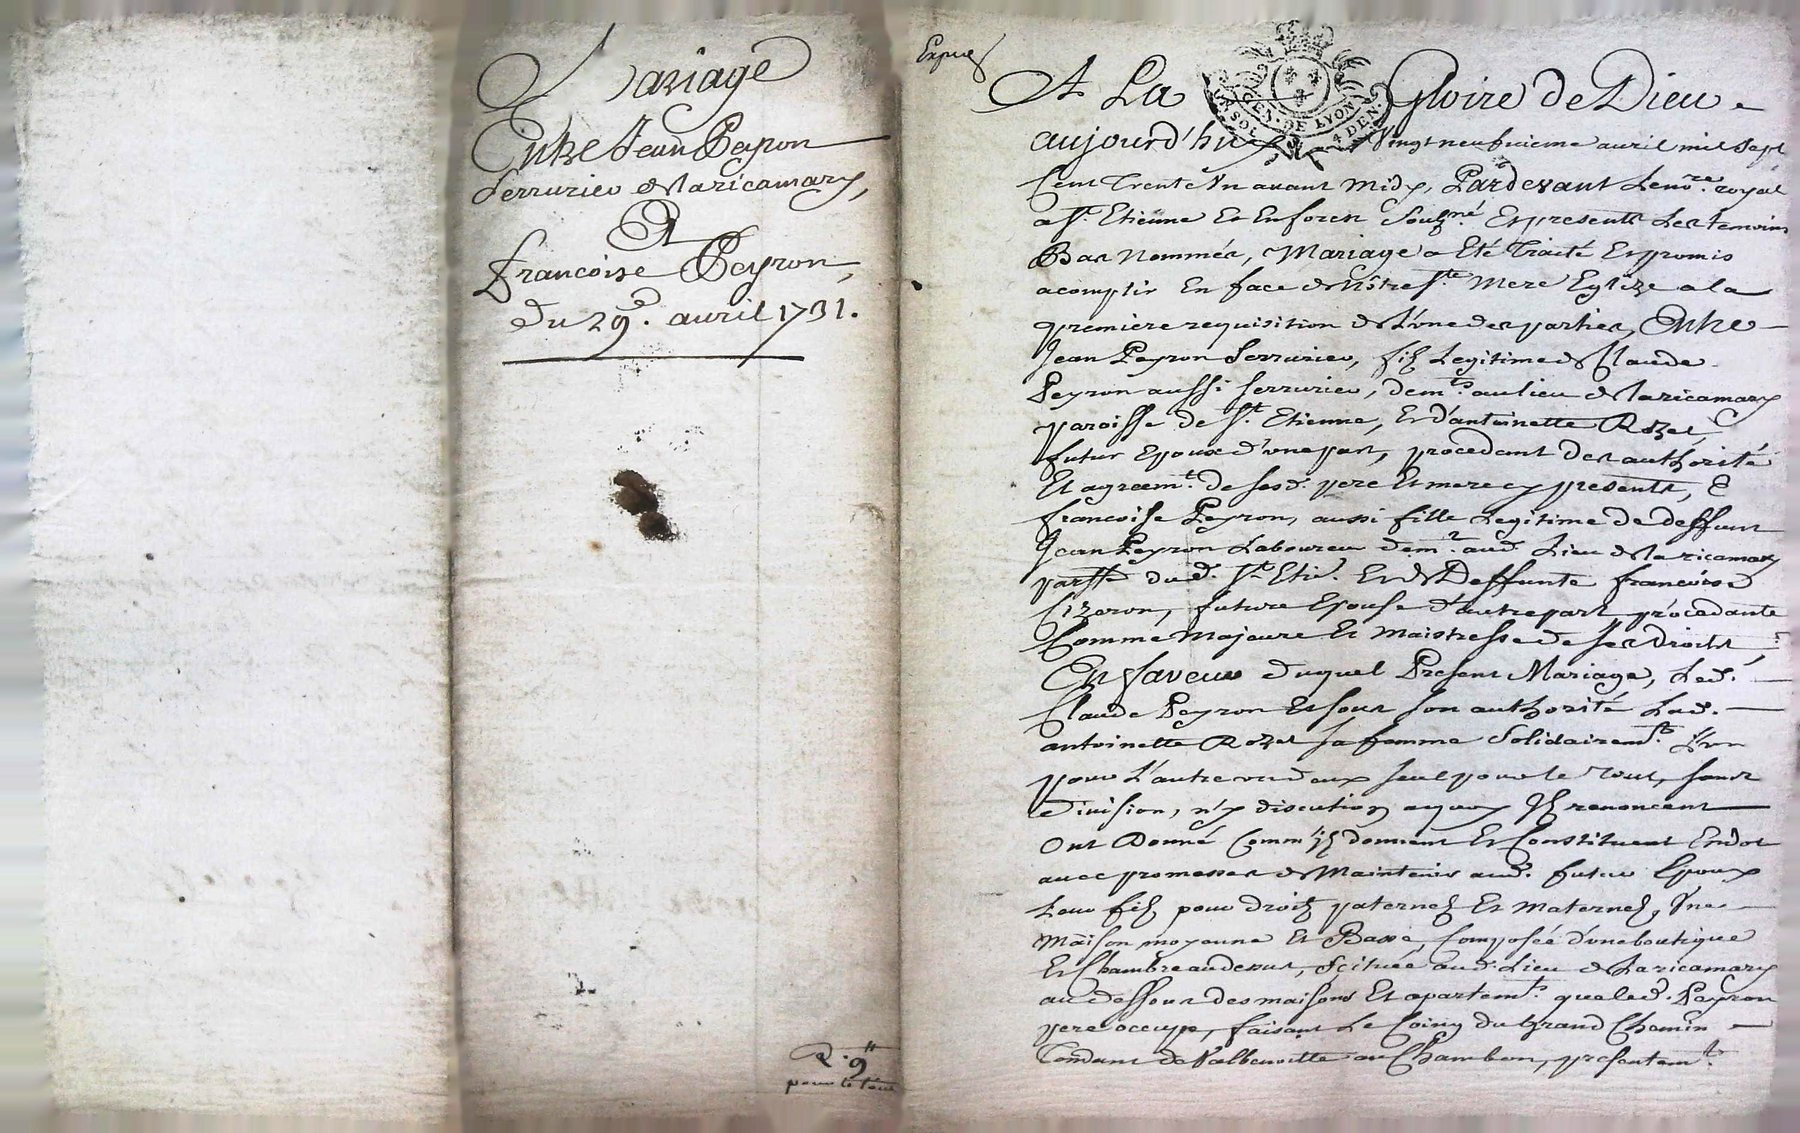 Mariage
Entre Jean Peyron
Serrurier de Laricamary,
Et
françoise Peyron,
du 29e. auril 1731.
R. 9
pour le tout
Expié
A La Gloire de Dieu
GEN. DE LYON
SOL 4 DEN.
aujourd'huy Vingt neufuieme auril mil Sept
Cent Trente Un auant midy, Pardevant Le nore. royal
a St. Etienne En forest Souzné. Et presents Les temoins
Bas Nommés, Mariage a Eté Traité Et promis
acomplir En face de Nôtre Ste. Mere Eglize a la
premiere requisition de L'vne des parties, Entre
Jean Peyron Serrurier, fils Legitime de Claude
Peyron aussi serrurier, demts. au lieu de Laricamary
paroisse de St. Etienne, Et d'antoinette Rozet,
futur Epoux d'vne part, procedant de l'authorité
Et agreemt. de sesd. pere Et mere cy presents, &
françoise Peyron, aussi fille Legitime de deffunt
Jean Peyron Laboureur demt. aud. Lieu de Laricamary
parsse. dud. St. Etie. Et de Deffunte françoise
Cizeron, future Epouse d'autre part procedante
Comme Majeure Et Maistresse de ses Droits,
En faveur duquel Present Mariage, Led.
Claude Peyron Et sous son authorité Lad.
antoinette Rozet sa femme Solidairemt. L'vn
pour L'autre vn deux seul pour le tout, sans
Division, n'y discution a quoy Ils renoncent
Ont Donné Comm'ils donnent Et Constituent En dot
auec promesses de Maintenir aud. futur Epoux
Leur fils pour droits paternels Et Maternels, Vne
Maison moyenne Et Basse, Composée d'vne boutique
Et Chambre au dessus, Scituée aud. Lieu de Laricamary
au dessous des maisons Et apartemts. que led. Peyron
pere occupe, faisant Le Coing du Grand Chemin
Tendant de Valbenoitte au Chambon, presentemt.